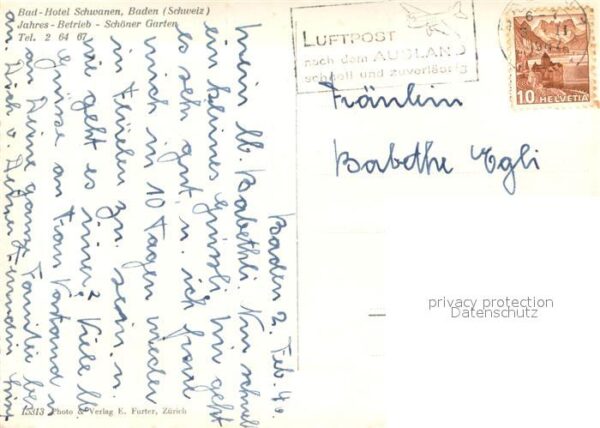 Bad-Hotel Schwanen, Baden (Schweiz)
Jahres-Betrieb - Schöner Garten
Tel. 2 64 67
LUFTPOST
nach dem AUSLAND
schnell und zuverlässig
10 HELVETIA
Fräulein
Babethe Egli
Baden 2. Feb. 48.
Mein lb. Babethli. Nun schnell
ein kleines Grüssli. Mir geht
es sehr gut u. ich freue
mich in 10 Tagen wieder
in Flüelen zu sein. u.
wie geht es immer? Viele lb
Grüsse an Frau
an Deine ganze Familie bes
an Dich v. Deiner
privacy protection
Datenschutz
15313 Photo & Verlag E. Furter, Zürich